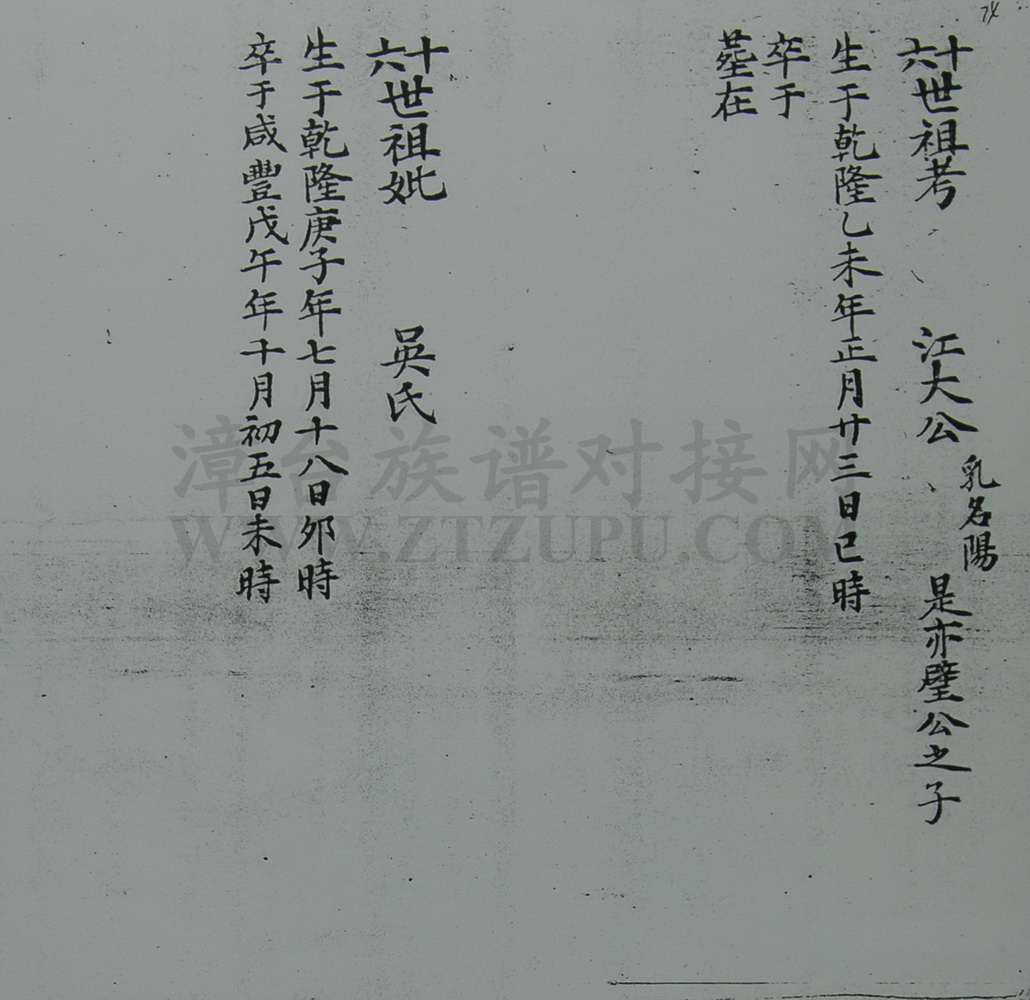 74
十六世祖考 江大公 乳名陽 是亦璧公之子
生于乾隆乙未年正月廿三日巳時
卒于
塟在
十六世祖妣 吳氏
生于乾隆庚子年七月十八日卯時
卒于咸豐戊午年十月初五日未時
漳台族谱对接网
WWW.ZTZUPU.COM